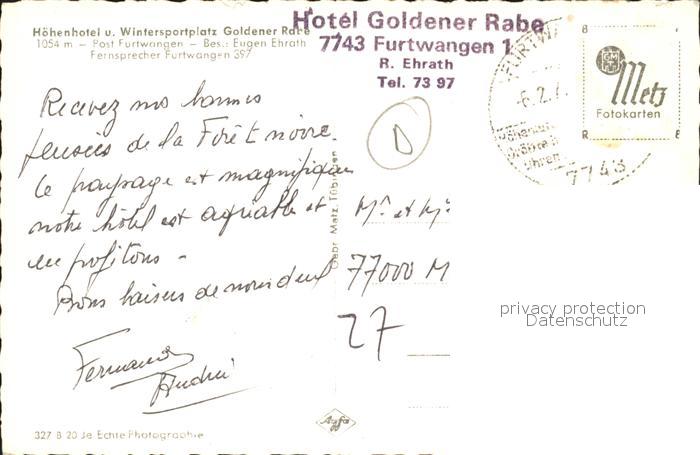 Höhenhotel u. Wintersportplatz Goldener Rabe
1054 m – Post Furtwangen – Bes.: Eugen Ehrath
Fernsprecher Furtwangen 397
Hotel Goldener Rabe
7743 Furtwangen 1
R. Ehrath
Tel. 73 97
FURTW
-6.2.7
Uhren
7743
B
GMT
Metz
Fotokarten
R
E
Recevez nos bonnes
pensées de la Forêt noire.
Le paysage est magnifique
notre hôtel est agréable et
en profitons -
Bons baisers de nous deux
Fernande
André
D
Gebr. Metz, Tübingen
Mr et Me
77000 M
27
privacy protection
Datenschutz
Agfa
327 B 20 Je Echte Photographie